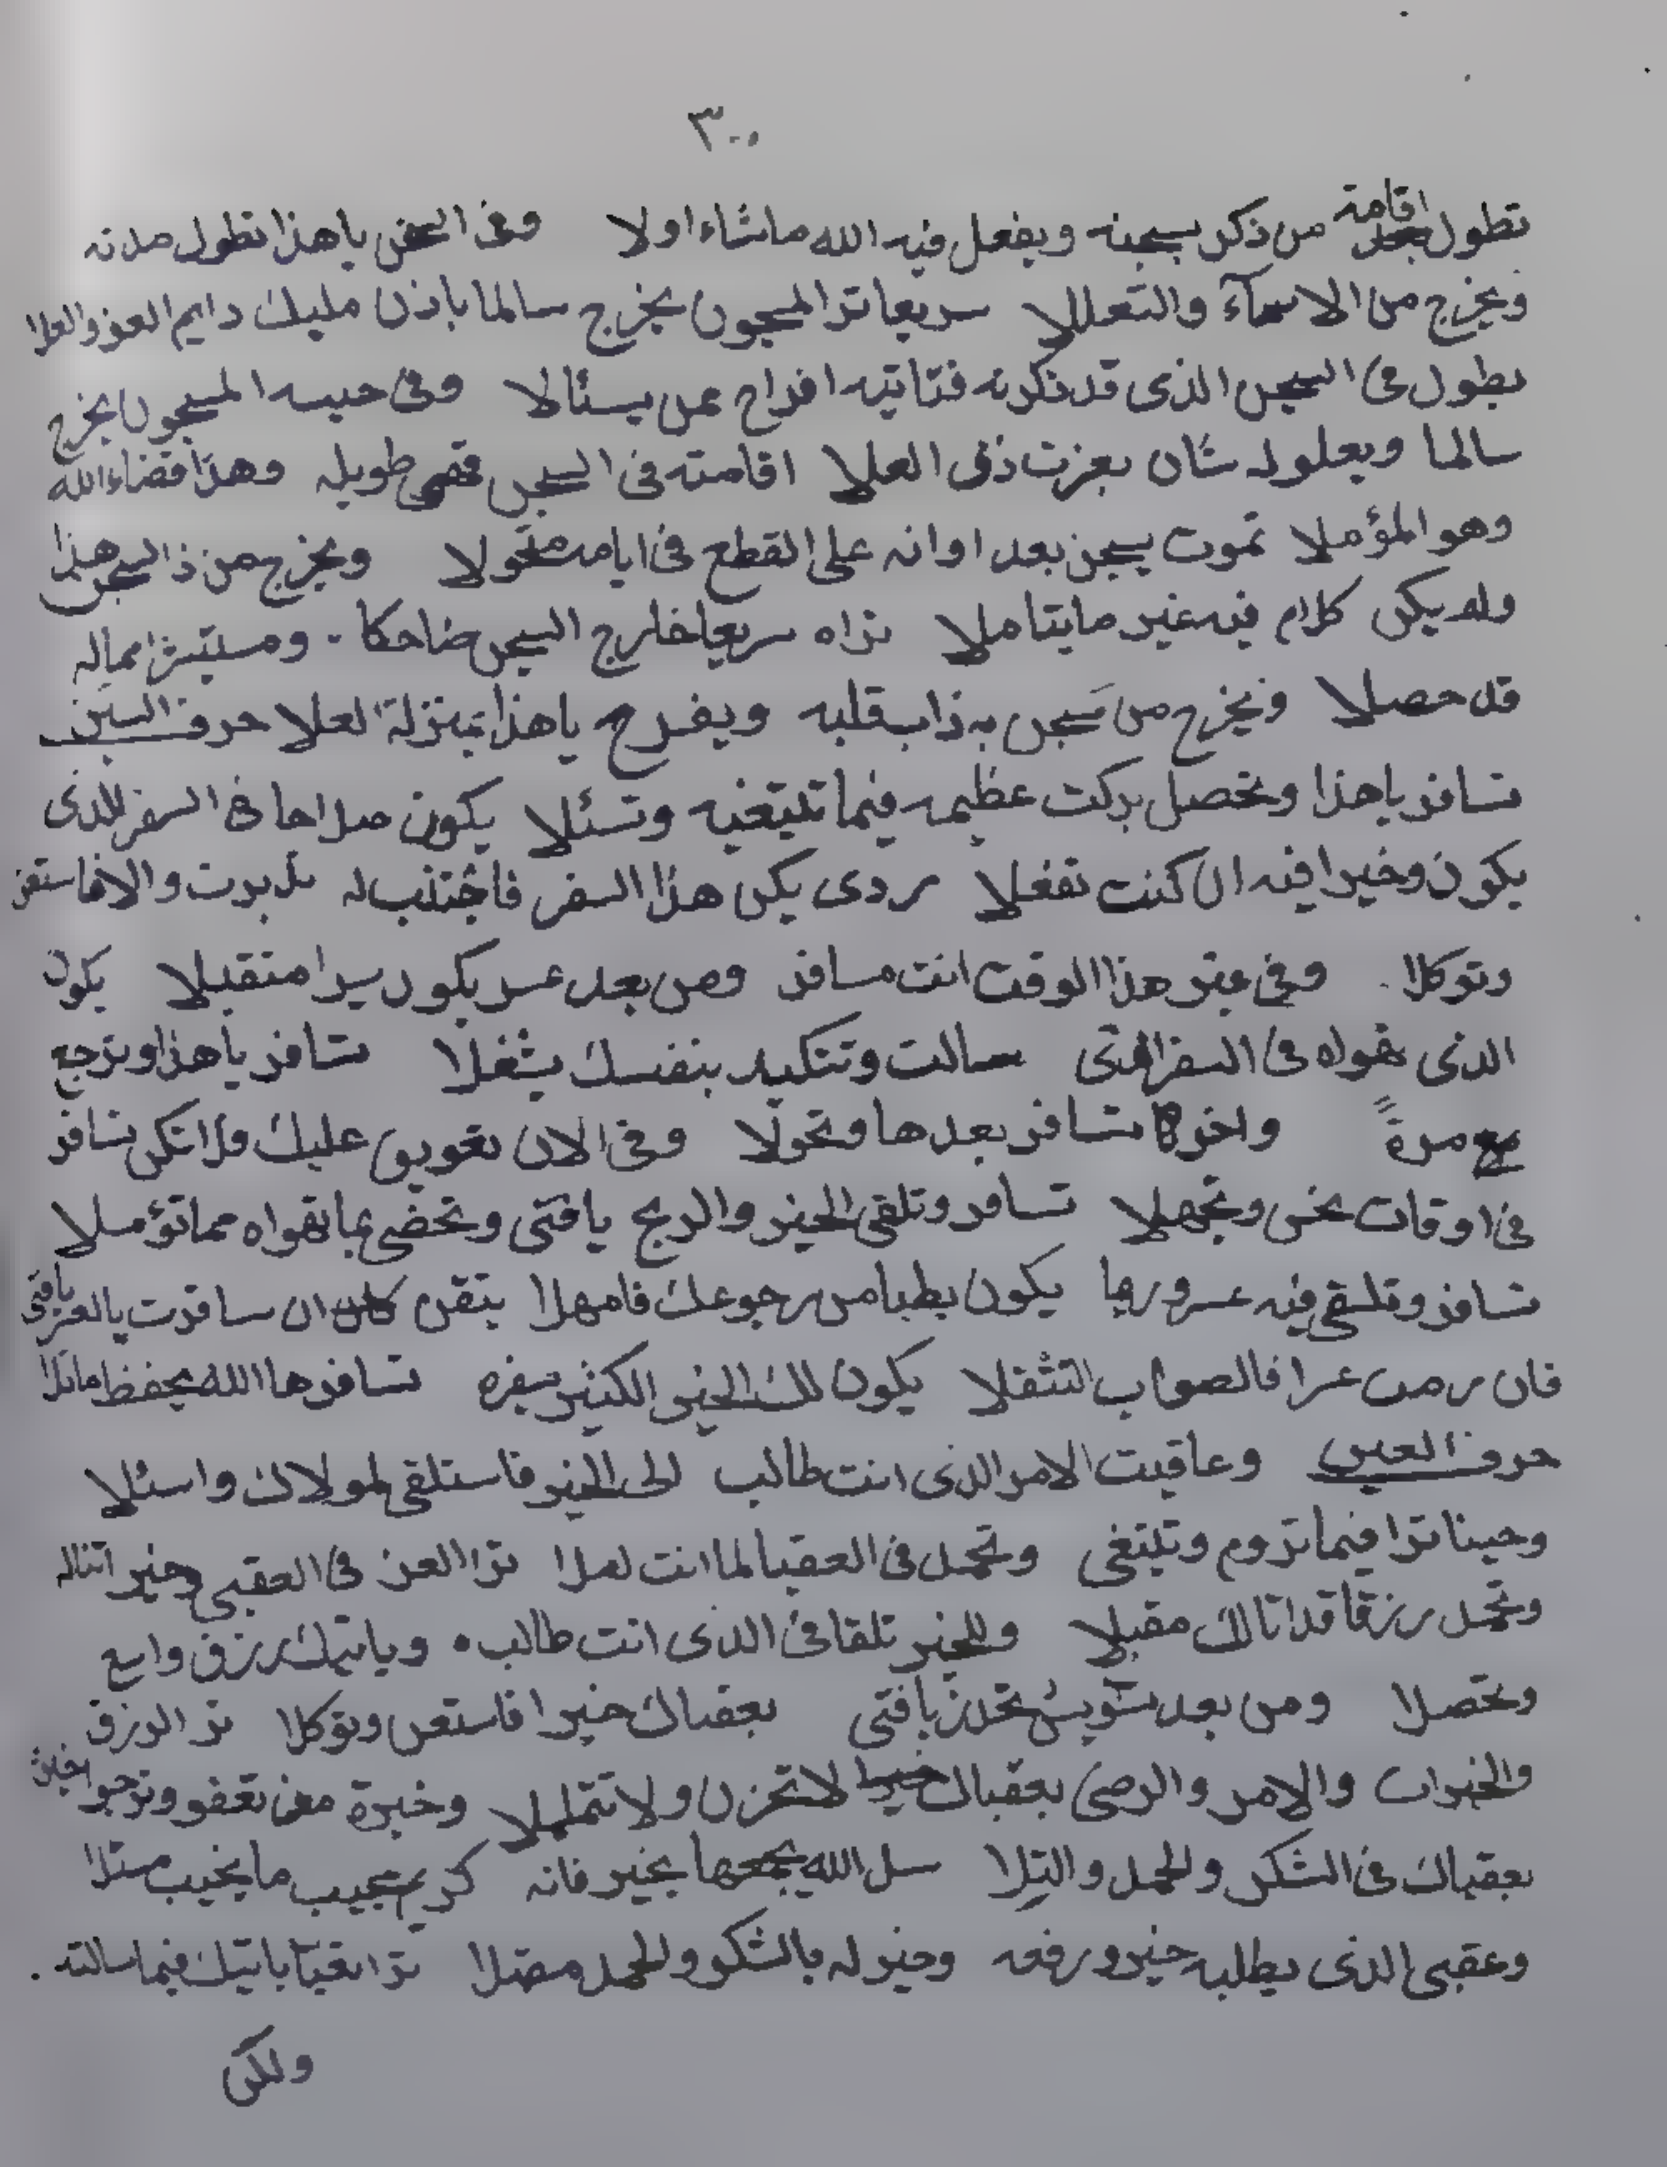 ٣٠٠
تطول اقامة من ذكر بسجنه ويفعل فيه الله ماشاء اولا وفى السجن ياهذا تطول مدته
ويخرج من الاسمآء والتعللا سريعا ترا المسجون يخرج سالما باذن مليك دايم العز والعلا
يطول فى السجن الذى قد ذكرته فتاتيه افراح ممن يسئالا وفى حبسه المسجون يخرج
سالما ويعلو له شان بعزت ذى العلا اقامته فى السجن فهى طويله وهذا قضاء الله
وهو المؤملا تموت بسجن بعد اوانه على القطع فى ايامه متحولا ويخرج من ذا السجن هذا
ولم يكن كلام فيه غير ما يتاملا تراه سريعا خارج السجن ضاحكا ومستبشرا مماله
قد حصلا ويخرج من سَجن به ذاب قلبه ويفرح ياهذا بمنزلة لعلا حرف السين
تسافر ياهذا وتحصل بركت عظيمه فيما تبتغيه وتسئلا يكون صلاحا فى السفر للذى
يكون وخيرا فيه ان كنت تفعلا ردى يكن هذا السفر فاجتنب له والا فاستقر
وتوكلا وفى غير هذا الوقت انت مسافر ومن بعد عسر يكون يسرا متقبلا يكون
الذى تهواه فى السفر الذى سالت وتتكيد بنفسك يشغلا تسافر ياهذا وترجع
مرةً واخرى تسافر بعدها وتحولا وفى الان تعويق عليك ولا تكن تسافر
فى اوقات نحس وتجهلا تسافر وتلقى الخير والربح يافتى وتحضى بما تهواه مما تؤملا
تسافر وتلتقى فيه عسر وربما يكون بطيا من رجوعك فامهلا يتقن ان سافرت يالعز يافتى
فان رمت عزا فالصواب التثقلا يكون لك الخير الكثير بسفره تسافرها الله يحفظ
حرف العين وعاقبت الامر الذى انت طالب الى الخير فاستلقى لمولاك واسئلا
وحينا ترا فيما تروم وتبتغى وتحمد فى العقبا لما انت ترا العز فى العقبى وخير اتناله
وتحمد رزقا قد اتا لك مقبلا وللخير تلقا فى الذى انت طالبه وياتيك رزق واسع
وتحصلا ومن بعد تشويش يافتى بعقباك خيرا فاستعن وتوكلا تر الرزق
والخيرات والامر والرضى بعقباك لا تحزن ولا تتململا وخيرة من تعفو وترجو
بعقباك فى الشكر والحمد سل الله يجعلها بخير فانه كريم مجيب ما يخيب مسئلا
وعقبى الذى يطلبه خير ورفعه وخير له بالشكر والحمد ترا ياتيك فيما سالته
ولكن